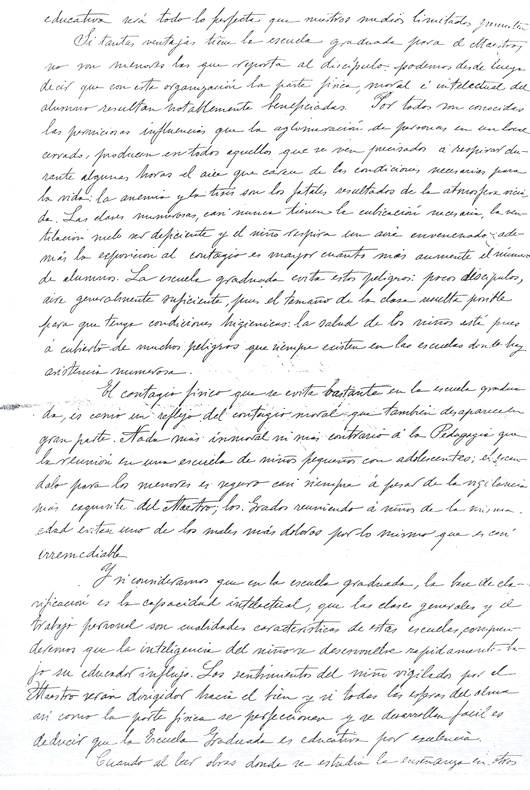 educativa será todo lo perfecta que nuestros medios limitados permitan
Si tantas ventajas tiene la escuela graduada para el Maestro
no son menores las que reporta al discípulo: podemos desde luego
decir que con esta organización la parte física, moral é intelectual del
alumno resultan notablemente beneficiadas. Por todos son conocidas
las perniciosas influencias que la aglomeración de personas en un local
cerrado, producen en todos aquellos que se ven precisados á respirar du-
rante algunas horas el aire que carece de las condiciones necesarias para
la vida: la anemia y la tisis son los fatales resultados de la atmosfera vicia-
da. Las clases numerosas, casi nunca tienen la cubicación necesaria, la ven-
tilación suele ser deficiente y el niño respira un aire envenenado; ade-
más la exposición al contagio es mayor cuanto más aumente el número
de alumnos. La escuela graduada evita estos peligros: pocos discípulos,
aire generalmente suficiente, pues el tamaño de la clase resulta posible
para que tenga condiciones higienicas: la salud de los niños está pues
á cubierto de muchos peligros que siempre existen en las escuelas donde hay
asistencia numerosa.
El contagio físico que se evita bastante en la escuela gradua-
da, es como un reflejo del contagio moral que también desaparece en
gran parte. Nada más inmoral ni más contrario á la Pedagogía que
la reunión en una escuela de niños pequeños con adolescentes; el escan-
dalo para los menores es seguro casi siempre á pesar de la vigilancia
más exquisita del Maestro; los Grados reuniendo á niños de la misma
edad evitan uno de los males más dolorosos por lo mismo que es casi
irremediable.
Y si consideramos que en la escuela graduada, la base de cla-
sificación es la capacidad intelectual, que las clases generales y el
trabajo personal son cualidades características de estas escuelas, compren-
deremos que la inteligencia del niño se desenvuelve rapidamente ba-
jo su educador influjo. Los sentimientos del niño vigilados por el
Maestro serán dirigidos hacia el bien y si todas las esferas del alma
asi como la parte física se perfeccionan y se desarrollan facil es
deducir que la Escuela Graduada es educativa por excelencia.
Cuando al leer obras donde se estudia la enseñanza en otros